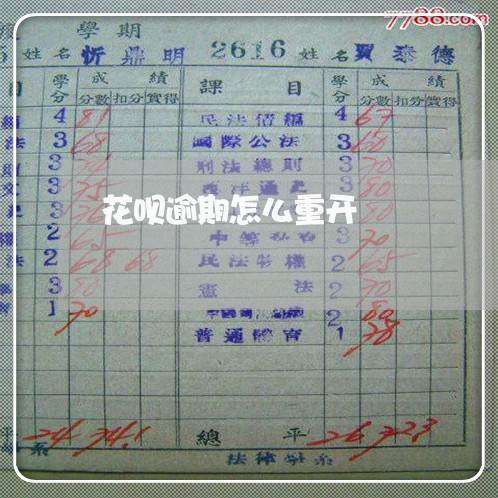 7788.com
學期
姓名 忻鼎明 2616 姓名 賈泰德
目 學分 成績 課目 學分 成績
分數 扣分 實得 分數 扣分 實得
4 81 民法債編 4 67
法 3 68 國際公法 3 60
3 刑法總則 3 70
3 75 西洋通史 3 80
花呗逾期怎么重开
2 65 3 70
法 2 68 68 民法物權 2 65
3 80 憲法 2 70
1 70 2 80
普通體育 1 78
平 24 74.1 總平 26 72.3
系 法律學系